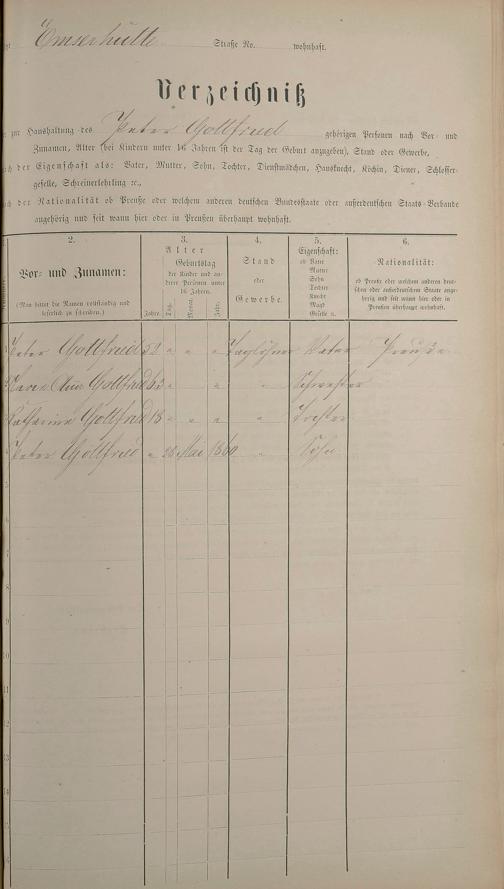 Emserhütte Straße No. wohnhaft.
Verzeichniß
zur Haushaltung des Peter Gottfried gehörigen Personen nach Vor- und
Zunamen, Alter (bei Kindern unter 16 Jahren ist der Tag der Geburt anzugeben), Stand oder Gewerbe,
nach der Eigenschaft als: Vater, Mutter, Sohn, Tochter, Dienstmädchen, Hausknecht, Köchin, Diener, Schlosser-
geselle, Schreinerlehrling ꝛc.,
nach der Nationalität ob Preuße oder welchem anderen deutschen Bundesstaate oder außerdeutschen Staats-Verbande
angehörig und seit wann hier oder in Preußen überhaupt wohnhaft.
2. 3. 4. 5. 6.
Vor- und Zunamen:
(Man bittet die Namen vollständig und
leserlich zu schreiben.)
Alter
Geburtstag
der Kinder und an-
derer Personen unter
16 Jahren.
Jahre. Tag. Monat. Jahr.
Stand
oder
Gewerbe.
Eigenschaft:
ob Vater
Mutter
Sohn
Tochter
Knecht
Magd
Geselle ꝛc.
Nationalität:
ob Preuße oder welchem anderen deut-
schen oder außerdeutschen Staate ange-
hörig und seit wann hier oder in
Preußen überhaupt wohnhaft.
Peter Gottfried 52 " " " Taglöhner Vater Preuße
Maria Ann Gottfried 63 " " " " Schwester
Catharina Gottfried 18 " " " " Tochter
Peter Gottfried " 28 Mai 1860 " Sohn
5
6
7
8
9
10
11
12
13
14
15